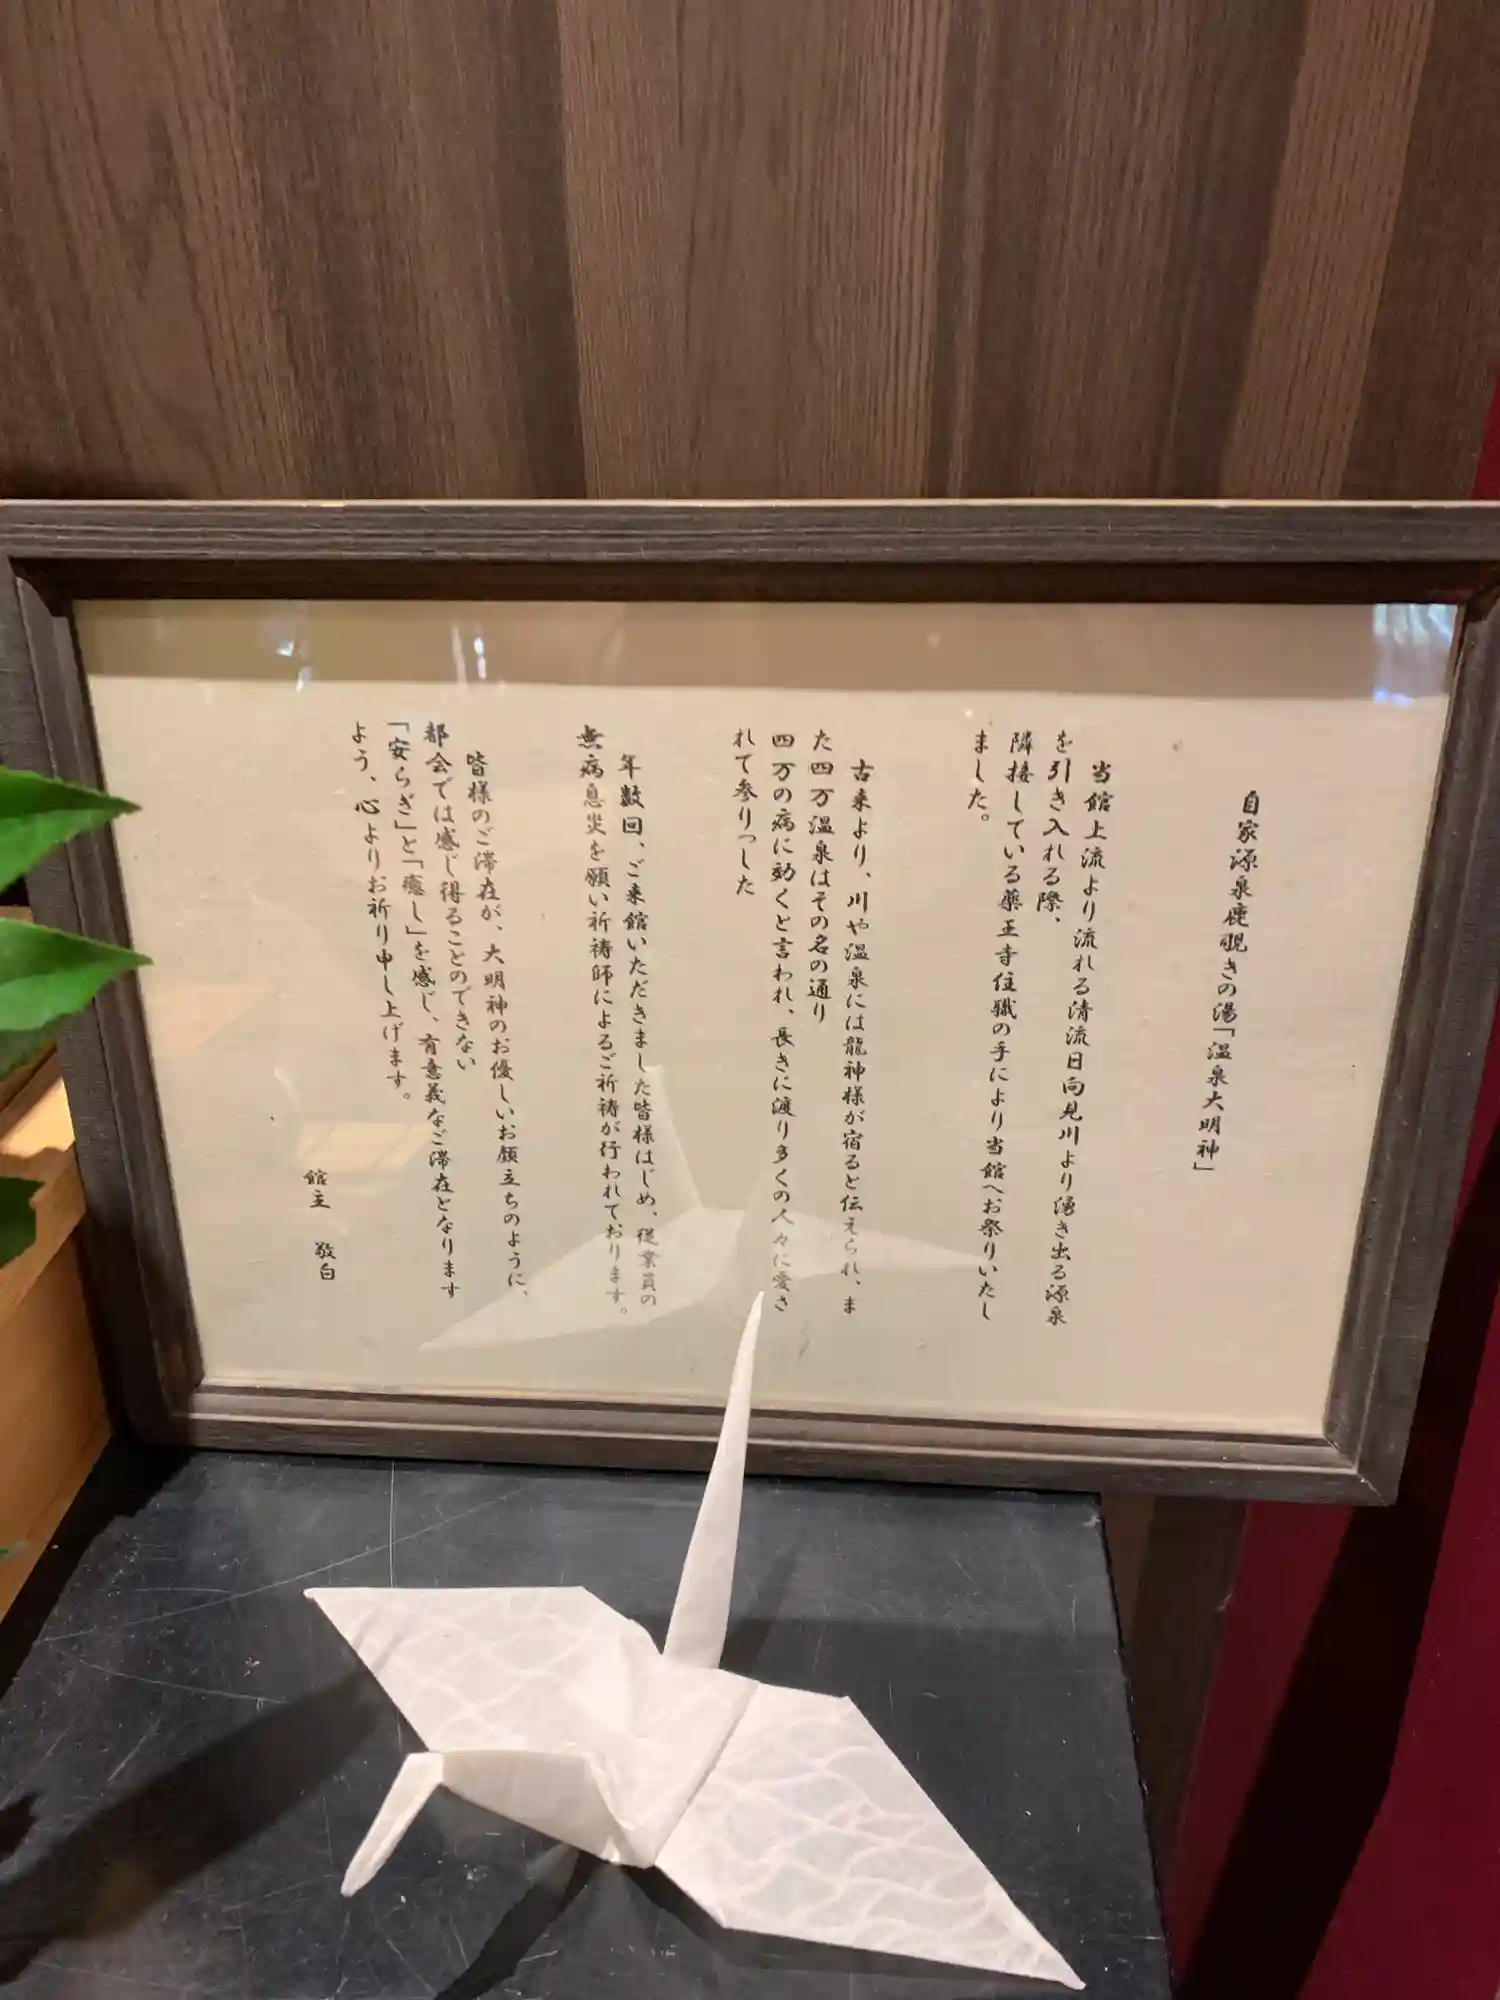 自家源泉鹿覗きの湯「温泉大明神」
当館上流より流れる清流日向見川より湧き出る源泉
を引き入れる際、
隣接している薬王寺住職の手により当館へお祭りいたし
ました。
古来より、川や温泉には龍神様が宿ると伝えられ、ま
た四万温泉はその名の通り
四万の病に効くと言われ、長きに渡り多くの人々に愛さ
れて参りっした
年数回、ご来館いただきました皆様はじめ、従業員の
無病息災を願い祈祷師によるご祈祷が行われております。
皆様のご滞在が、大明神のお優しいお顔立ちのように、
都会では感じ得ることのできない
「安らぎ」と「癒し」を感じ、有意義なご滞在となります
よう、心よりお祈り申し上げます。
館主 敬白